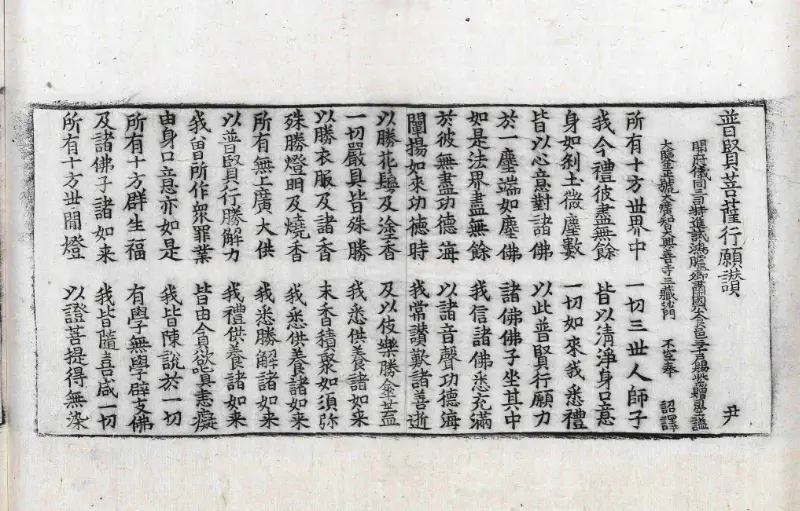 普賢菩薩行願讃 尹
開府儀同三司特進試鴻臚卿肅國公食邑三千戶賜紫贈司空謚
大鑒正號大廣智大興善寺三藏沙門 不空奉 詔譯
所有十方世界中 一切三世人師子
我今禮彼盡無餘 皆以清淨身口意
身如刹土微塵數 一切如来我悉禮
皆以心意對諸佛 以此普賢行願力
於一塵端如塵佛 諸佛佛子坐其中
如是法界盡無餘 我信諸佛悉充滿
於彼無盡功德海 以諸音聲功德海
闡揚如来功德時 我常讃歎諸善逝
以勝花鬘及塗香 及以伎樂勝傘蓋
一切嚴具皆殊勝 我悉供養諸如来
以勝衣服及諸香 末香積聚如須弥
殊勝燈明及燒香 我悉供養諸如来
所有無上廣大供 我悉勝解諸如来
以普賢行勝解力 我禮供養諸如来
我曽所作衆罪業 皆由貪欲瞋恚癡
由身口意亦如是 我皆陳說於一切
所有十方群生福 有學無學辟支佛
及諸佛子諸如来 我皆隨喜咸一切
所有十方世間燈 以證菩提得無染